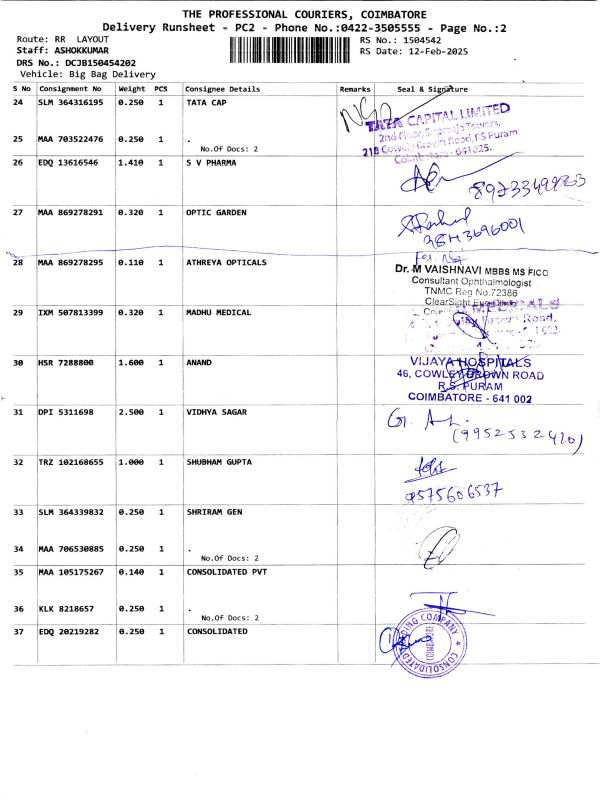 THE PROFESSIONAL COURIERS, COIMBATORE
Delivery Runsheet - PC2 - Phone No.:0422-3505555 - Page No.:2
Route: RR LAYOUT
RS No.: 1504542
Staff: ASHOKKUMAR
RS Date: 12-Feb-2025
DRS No.: DCJB1504S4202
Vehicle: Big Bag Delivery
S No Consignment No Weight PCS Consignee Details Remarks Seal & Signature
24 SLM 364316195 0.250 1 TATA CAP
TATA CAPITAL LIMITED
2nd Floor, Towers,
21B Cowley Brown Road, RS Puram,
Coimbatore - 641025.
25 MAA 703522476 0.250 1 .
No.Of Docs: 2
26 EDQ 13616546 1.410 1 S V PHARMA
27 MAA 869278291 0.320 1 OPTIC GARDEN
28 MAA 869278295 0.110 1 ATHREYA OPTICALS
Dr. M VAISHNAVI MBBS MS FICO
Consultant Ophthalmologist
TNMC Reg No.72386
ClearSight Eye Clinic
29 IXM 507813399 0.320 1 MADHU MEDICAL
Brown Road,
30 HSR 7288800 1.600 1 ANAND
VIJAYA HOSPITALS
46, COWLEY BROWN ROAD
R.S. PURAM
COIMBATORE - 641 002
31 DPI 5311698 2.500 1 VIDHYA SAGAR
(9952532420)
32 TRZ 102168655 1.000 1 SHUBHAM GUPTA
9575606537
33 SLM 364339832 0.250 1 SHRIRAM GEN
34 MAA 706530885 0.250 1 .
No.Of Docs: 2
35 MAA 105175267 0.140 1 CONSOLIDATED PVT
36 KLK 8218657 0.250 1 .
No.Of Docs: 2
37 EDQ 20219282 0.250 1 CONSOLIDATED
CONSOLIDATED TRADING COMPANY
COIMBATORE